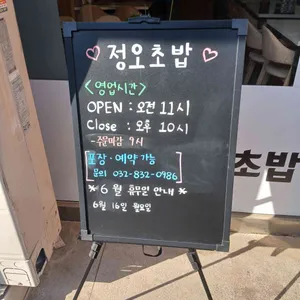 ♡ 정오초밥 ♡
<영업시간>
OPEN : 오전 11시
Close : 오후 10시
- 주문마감 9시
포장·예약 가능
문의 032-832-0986
※ 6월 휴무일 안내 ※
6월 16일 월요일
초밥